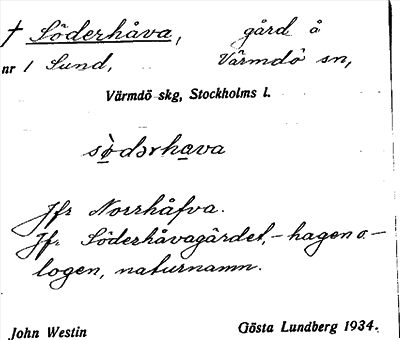 † Söderhåva, gård å
nr 1 Sund, Värmdö sn,
Värmdö skg, Stockholms l.
sòdərhava
Jfr Norrhåfva.
Jfr Söderhåvagärdet, -hagen o. -
logen, naturnamn.
John Westin Gösta Lundberg 1934.